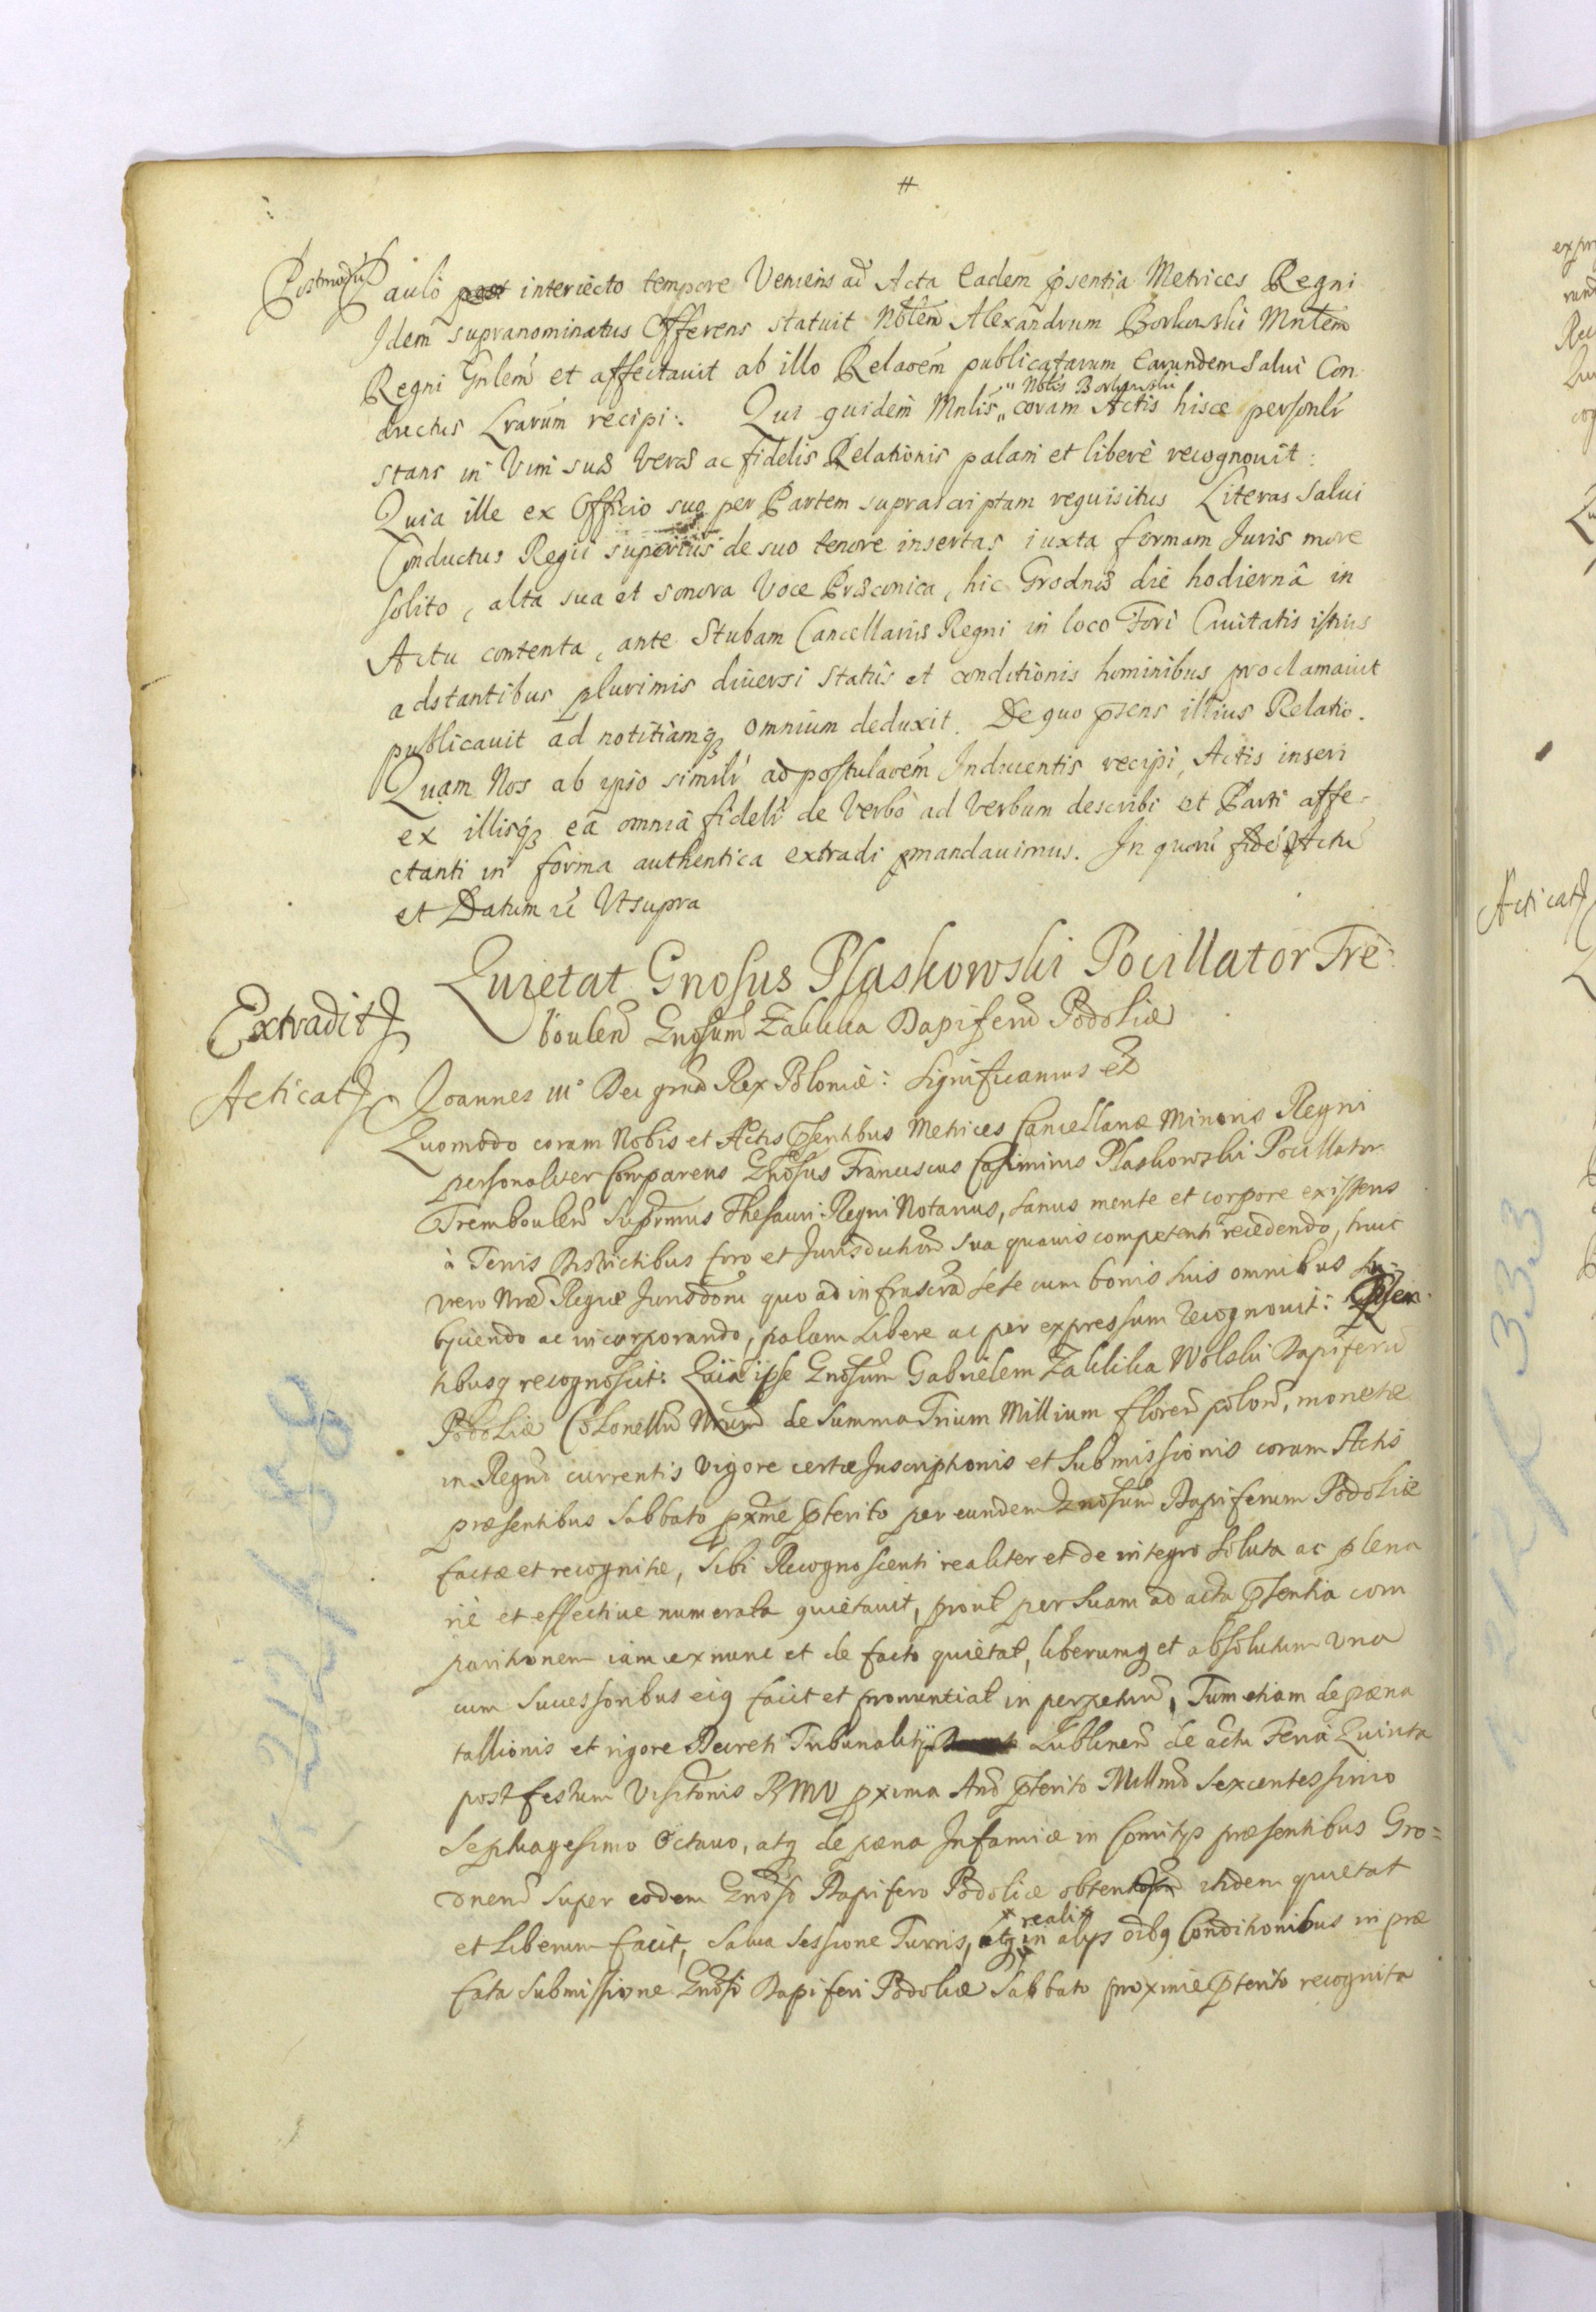 #
Postmodū
Paulo post interiecto tempore Veniens ad Acta Eadem psentia Metrices Regni
Idem supranominatus Offerens statuit Noblem Alexandrum Borkowski Mnlem
Regni Gnlem et affectauit ab illo Relaoem publicatarum Earundem Salui Con
ductus Lrarum recipi. Qui quidem Mnlis „ coram Actis hisce personlr
„ Nobis Borkowski
stans in Vim suæ veræ ac fidelis Relationis palam et libere recognouit:
Quia ille ex Officio suo per Partem suprascriptam requisitus Literas Salui
Conductus Regii superius de suo tenore insertas iuxta formam Iuris more
solito, alta sua et sonora Voce Præconica, hic Grodnæ die hodierna in
Actu contenta, ante Stubam Cancellariis Regni in loco Fori Ciuitatis istius
adstantibus plurimis diuersi status et conditionis hominibus proclamauit
publicauit ad notitiamq omnium deduxit. De quo psens illius Relatio.
Quam Nos ab ipso simili ad postulaoem Inducentis recipi, Actis inseri
ex illisq ea omnia fideli de verbo ad verbum describi et Parti affe-
ctanti in forma authentica extradi pmandauimus. In quoru fidē Actū
et Datum ūt Vtsupra
Quietat Gnosus Plaskowski Pocillator Tre:
boulen Gnosum Zaklika Dapiferū Podoliæ
Extradit
Acticat
Joannes III° Dei grā Rex Poloniæ: Significamus et
Quomodo coram Nobis et Actis psentibus Metrices Cancellariæ Minoris Regni
personaliter Comparens Gnosus Franciscus Casimirus Plaskowski Pocillator
Tremboulen Supremus Thesauri Regni Notarius, sanus mente et corpore existens
à Terris Districtibus foro et Jurisdictione sua quauis competenti recedendo, huic
vero Nræ Regiæ Jurisdõni quo ad infrascra sese cum bonis suis omnibus su-
bijciendo ac incorporando, palam libere ac per expressum recognouit: Psen-
tibusq recognoscit: Quia ipse Gnosum Gabrielem Zaklika Wolski Dapiferū
Podoliæ Colonellū Nrum de Summa Trium Millium floren polon, monetæ
in Regno currentis vigore certæ Inscriptionis et Submissionis coram Actis
præsentibus Sabbato pxme pterito per eundem Gnosum Dapiferum Podoliæ
factæ et recognitæ, sibi Recognoscenti realiter et de integro soluta ac plena
riè et effectiue numerata quietauit, prout per suam ad acta psentia com
paritionem iam ex nunc et de facto quietat, liberumq et absolutum vna
cum Successoribus eiq facit et pronuntiat in perpetuū, Tum etiam de pæna
tallionis et rigore Decreti Tribunalitij Lublinen de actu Feria Quinta
post festum Visitõnis BMV pxima Anō pterito Millmo Sexcentessimo
Septuagesimo Octauo, atq de pæna Infamiæ in Comitijs præsentibus Gro=
dnen super eodem Gnoso Dapifero Podoliæ obten itidem quietat
et liberum facit, salua sessione Turris, atq in alijs oibq Conditionibus in præ
reali
fata submissione Gnosi Dapiferi Podoliæ Sabbato proxime pterito recognita
Acticat